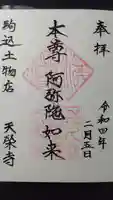 奉拝
令和四年
二月五日
本尊 阿弥陀如来
駒込土物店
天栄寺